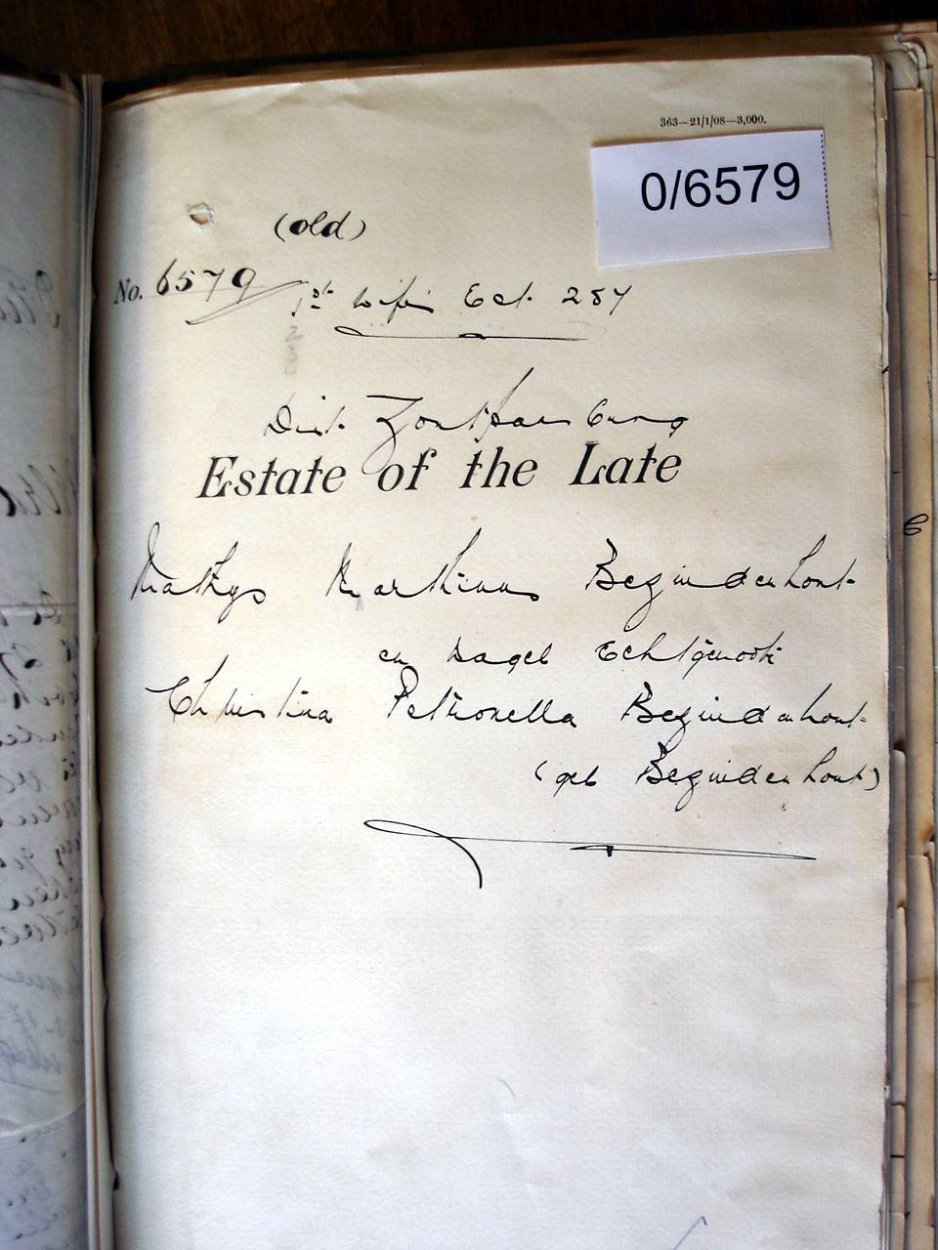 363—21/1/08—3,000.
0/6579
(old)
No. 6579
1st wife Est. 287
Dist. Zoutpansberg
Estate of the Late
Mathys Marthinus Bezuidenhout
en Echtgenoote
Christina Petronella Bezuidenhout
(geb Bezuidenhout)